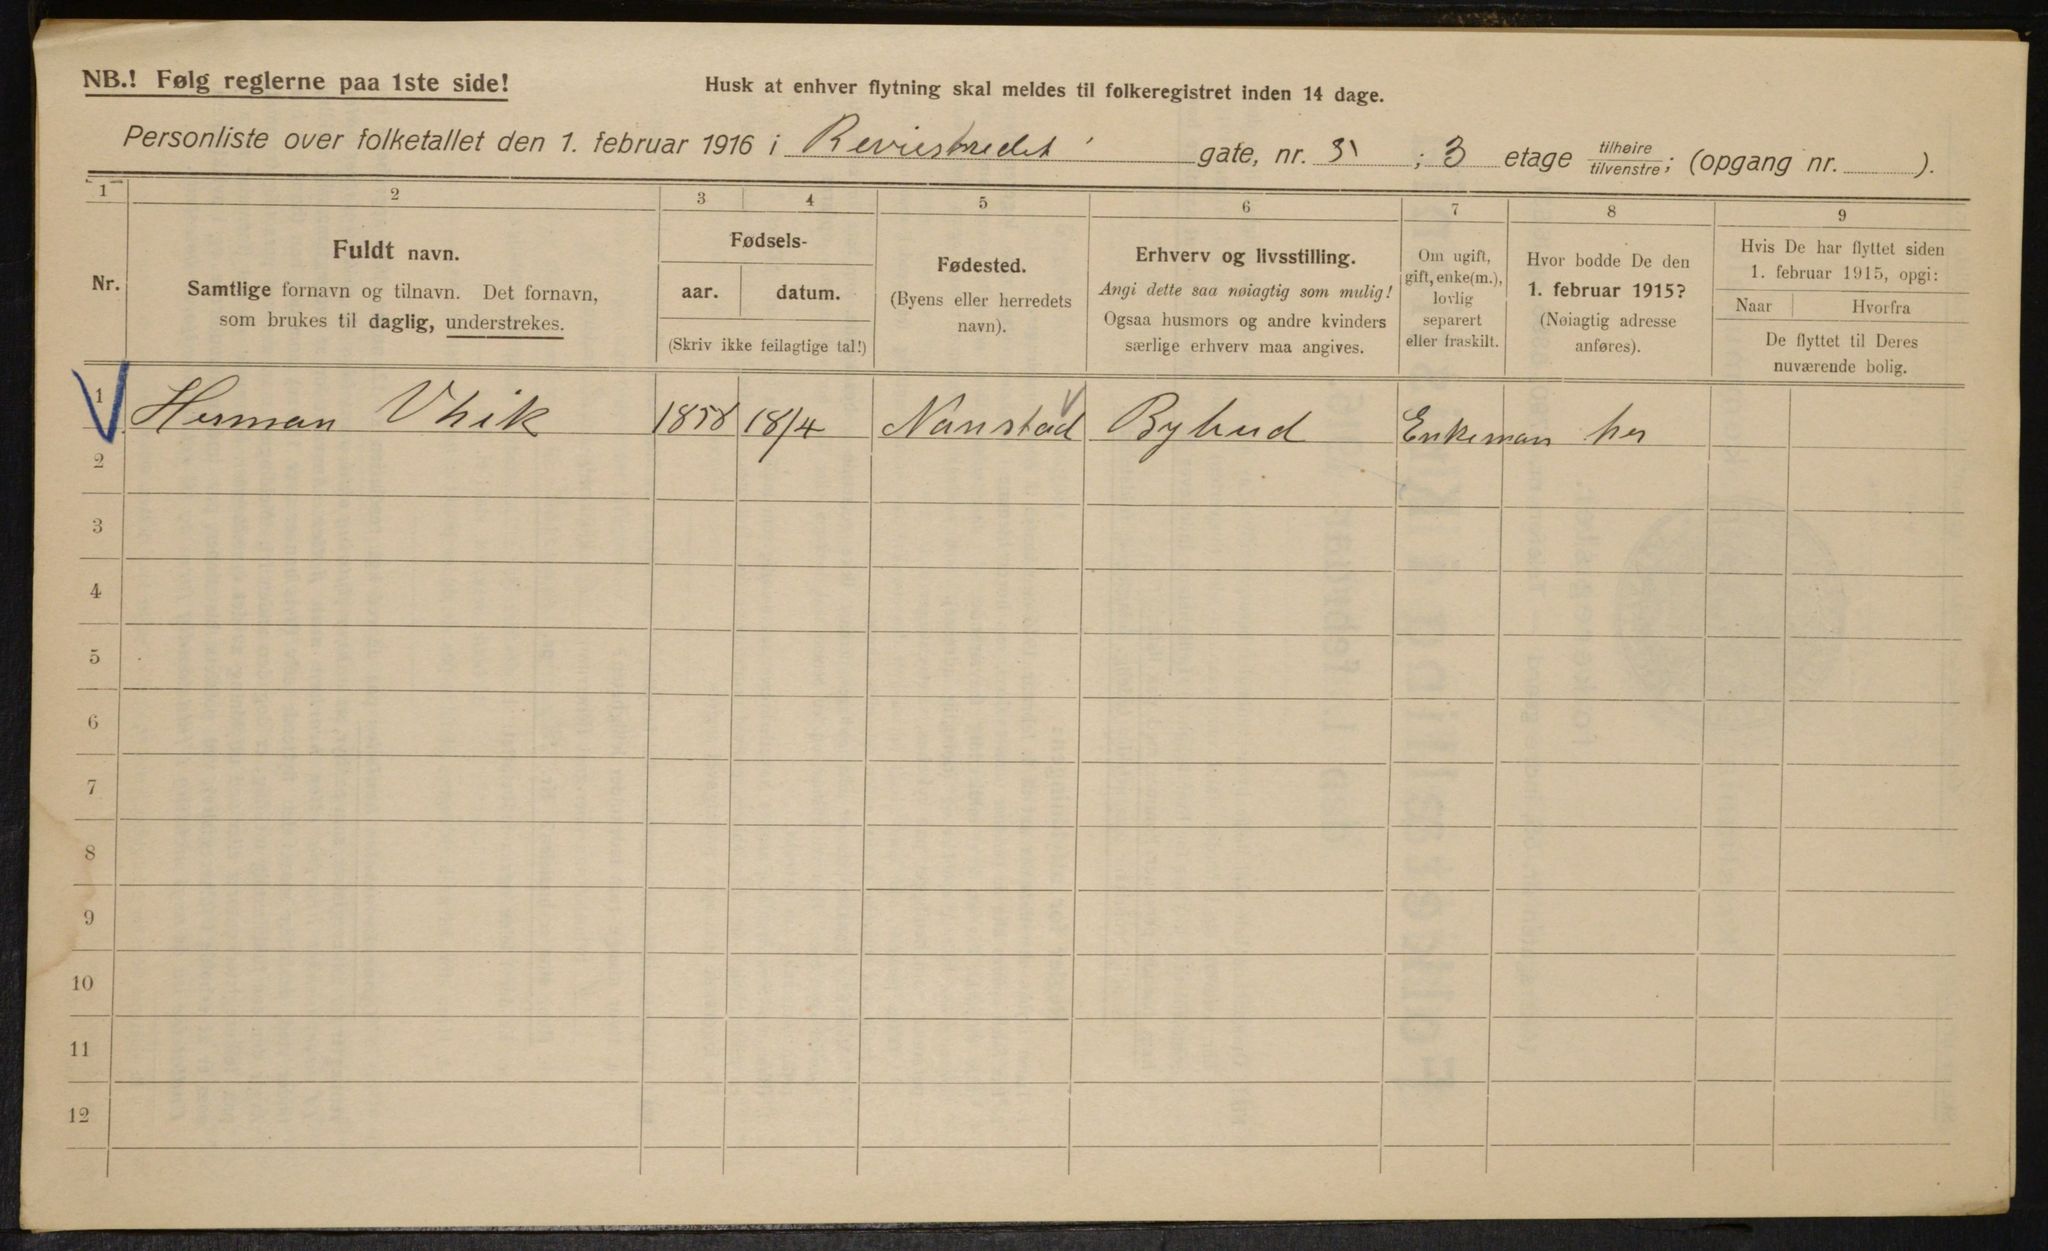 NB.! Følg reglerne paa 1ste side!
Husk at enhver flytning skal meldes til folkeregistret inden 14 dage.
Personliste over folketallet den 1. februar 1916 i Reviestredet gate, nr. 31 ; 3 etage tilhøire / tilvenstre ; (opgang nr. ).
1 2 3 4 5 6 7 8 9
Nr.
Fuldt navn.
Samtlige fornavn og tilnavn. Det fornavn,
som brukes til daglig, understrekes.
Fødsels-
aar. datum.
(Skriv ikke feilagtige tal!)
Fødested.
(Byens eller herredets
navn).
Erhverv og livsstilling.
Angi dette saa nøiagtig som mulig!
Ogsaa husmors og andre kvinders
særlige erhverv maa angives.
Om ugift,
gift, enke(m.),
lovlig
separert
eller fraskilt.
Hvor bodde De den
1. februar 1915?
(Nøiagtig adresse
anføres).
Hvis De har flyttet siden
1. februar 1915, opgi:
Naar Hvorfra
De flyttet til Deres
nuværende bolig.
1 Herman Vhik 1858 18/4 Nanstad Bybud Enkeman her
2
3
4
5
6
7
8
9
10
11
12